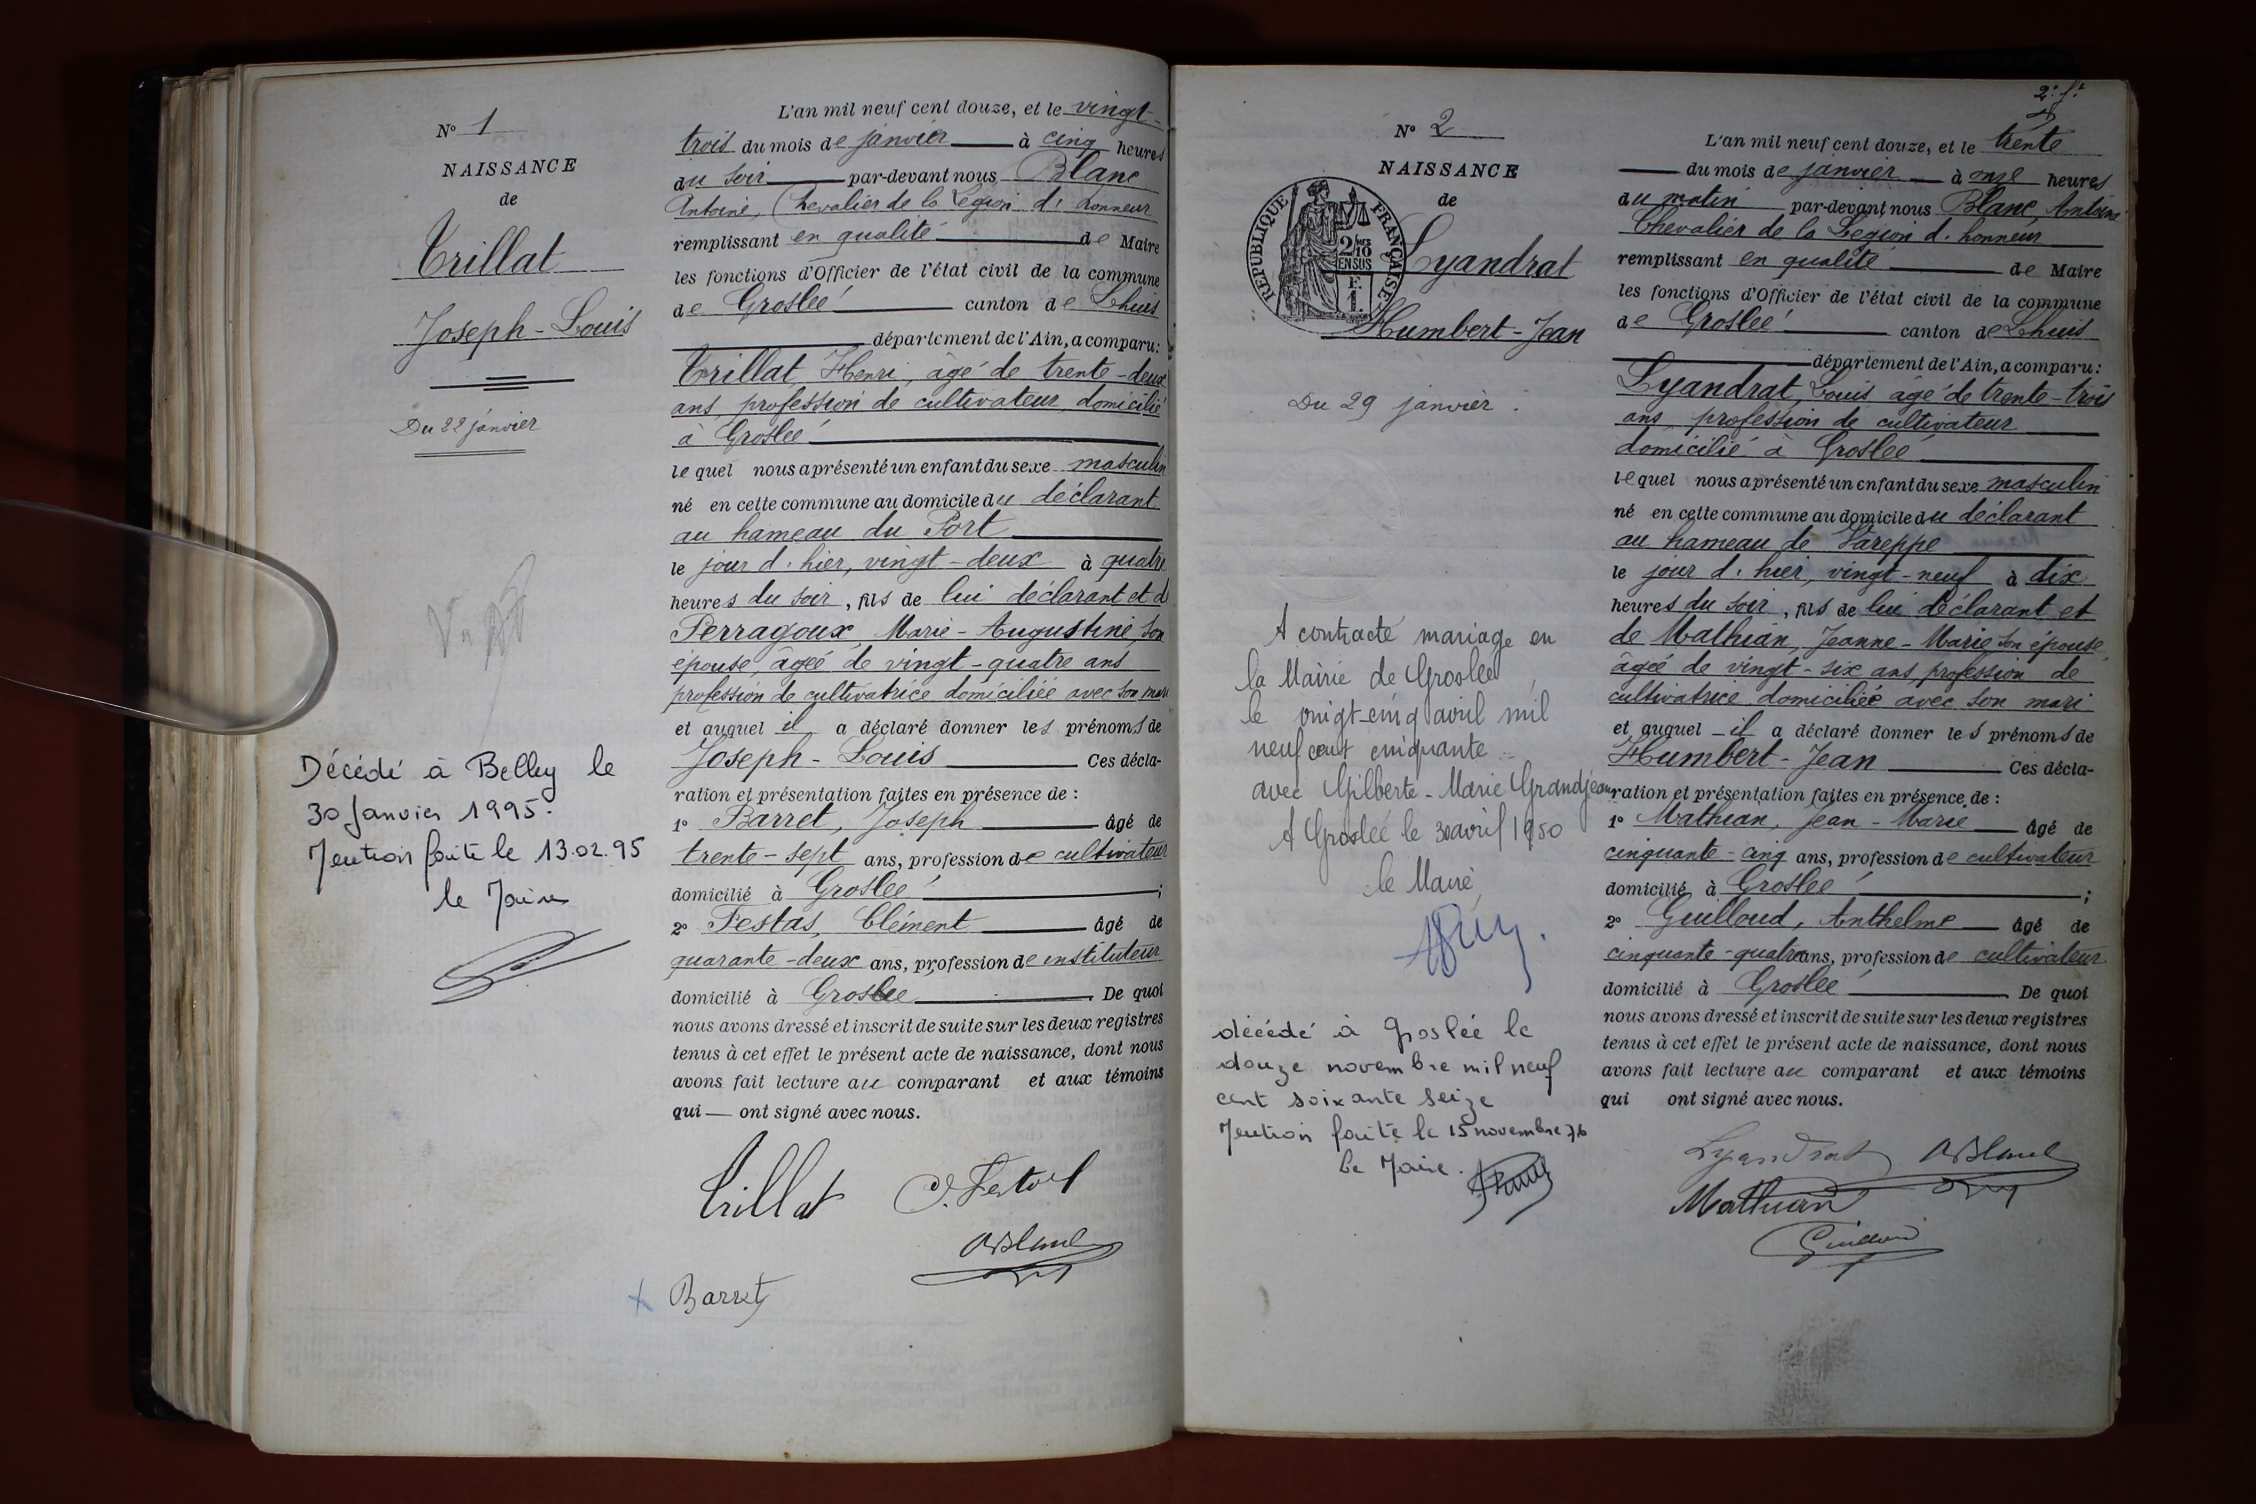 N° 1
NAISSANCE
de
Trillat
Joseph-Louis
Du 22 janvier
Décédé à Belley le
30 Janvier 1995.
Mention faite le 13.02.95
le Maire
L'an mil neuf cent douze, et le vingt-
trois du mois de janvier à cinq heures
du soir par-devant nous Blanc
Antoine, Chevalier de la Légion d'honneur
remplissant en qualité de Maire
les fonctions d'Officier de l'état civil de la commune
de Groslée canton de Lhuis
département de l'Ain, a comparu:
Trillat, Henri, âgé de trente-deux
ans, profession de cultivateur domicilié
à Groslée
lequel nous a présenté un enfant du sexe masculin
né en cette commune au domicile du déclarant
au hameau du Port
le jour d'hier, vingt-deux à quatre
heures du soir, fils de lui déclarant et d
Perragoux, Marie-Augustine, son
épouse, âgée de vingt-quatre ans
profession de cultivatrice domiciliée avec son mari
et auquel il a déclaré donner les prénoms de
Joseph-Louis Ces décla-
ration et présentation faites en présence de :
1° Barret, Joseph âgé de
trente-sept ans, profession de cultivateur
domicilié à Groslée ;
2° Festas, Clément âgé de
quarante-deux ans, profession de instituteur
domicilié à Groslée. De quoi
nous avons dressé et inscrit de suite sur les deux registres
tenus à cet effet le présent acte de naissance, dont nous
avons fait lecture au comparant et aux témoins
qui — ont signé avec nous.
Trillat
ABlanc
Barret
2e f.t
N° 2
NAISSANCE
de
RÉPUBLIQUE FRANÇAISE
2/10 EN SUS
F. 1.
Lyandrat
Humbert-Jean
Du 29 janvier.
A contracté mariage en
la Mairie de Groslée,
le vingt-cinq avril mil
neuf cent cinquante
avec Gilberte-Marie Grandjean
A Groslée le 30 avril 1950
le Maire
décédé à Groslée le
douze novembre mil neuf
cent soixante seize
Mention faite le 15 novembre 76
Le Maire.
L'an mil neuf cent douze, et le trente
du mois de janvier à onze heures
du matin par-devant nous Blanc, Antoine
Chevalier de la Légion d'honneur
remplissant en qualité de Maire
les fonctions d'Officier de l'état civil de la commune
de Groslée canton de Lhuis
département de l'Ain, a comparu:
Lyandrat, Louis âgé de trente-trois
ans, profession de cultivateur
domicilié à Groslée
lequel nous a présenté un enfant du sexe masculin
né en cette commune au domicile du déclarant
au hameau de Vareppe
le jour d'hier, vingt-neuf à dix
heures du soir, fils de lui déclarant et
de Mathian, Jeanne-Marie, son épouse,
âgée de vingt-six ans, profession de
cultivatrice domiciliée avec son mari
et auquel il a déclaré donner les prénoms de
Humbert-Jean Ces décla-
ration et présentation faites en présence de :
1° Mathian, Jean-Marie âgé de
cinquante-cinq ans, profession de cultivateur
domicilié à Groslée ;
2° Guilloud, Anthelme âgé de
cinquante-quatre ans, profession de cultivateur
domicilié à Groslée. De quoi
nous avons dressé et inscrit de suite sur les deux registres
tenus à cet effet le présent acte de naissance, dont nous
avons fait lecture au comparant et aux témoins
qui ont signé avec nous.
Lyandrat ABlanc
Mathian